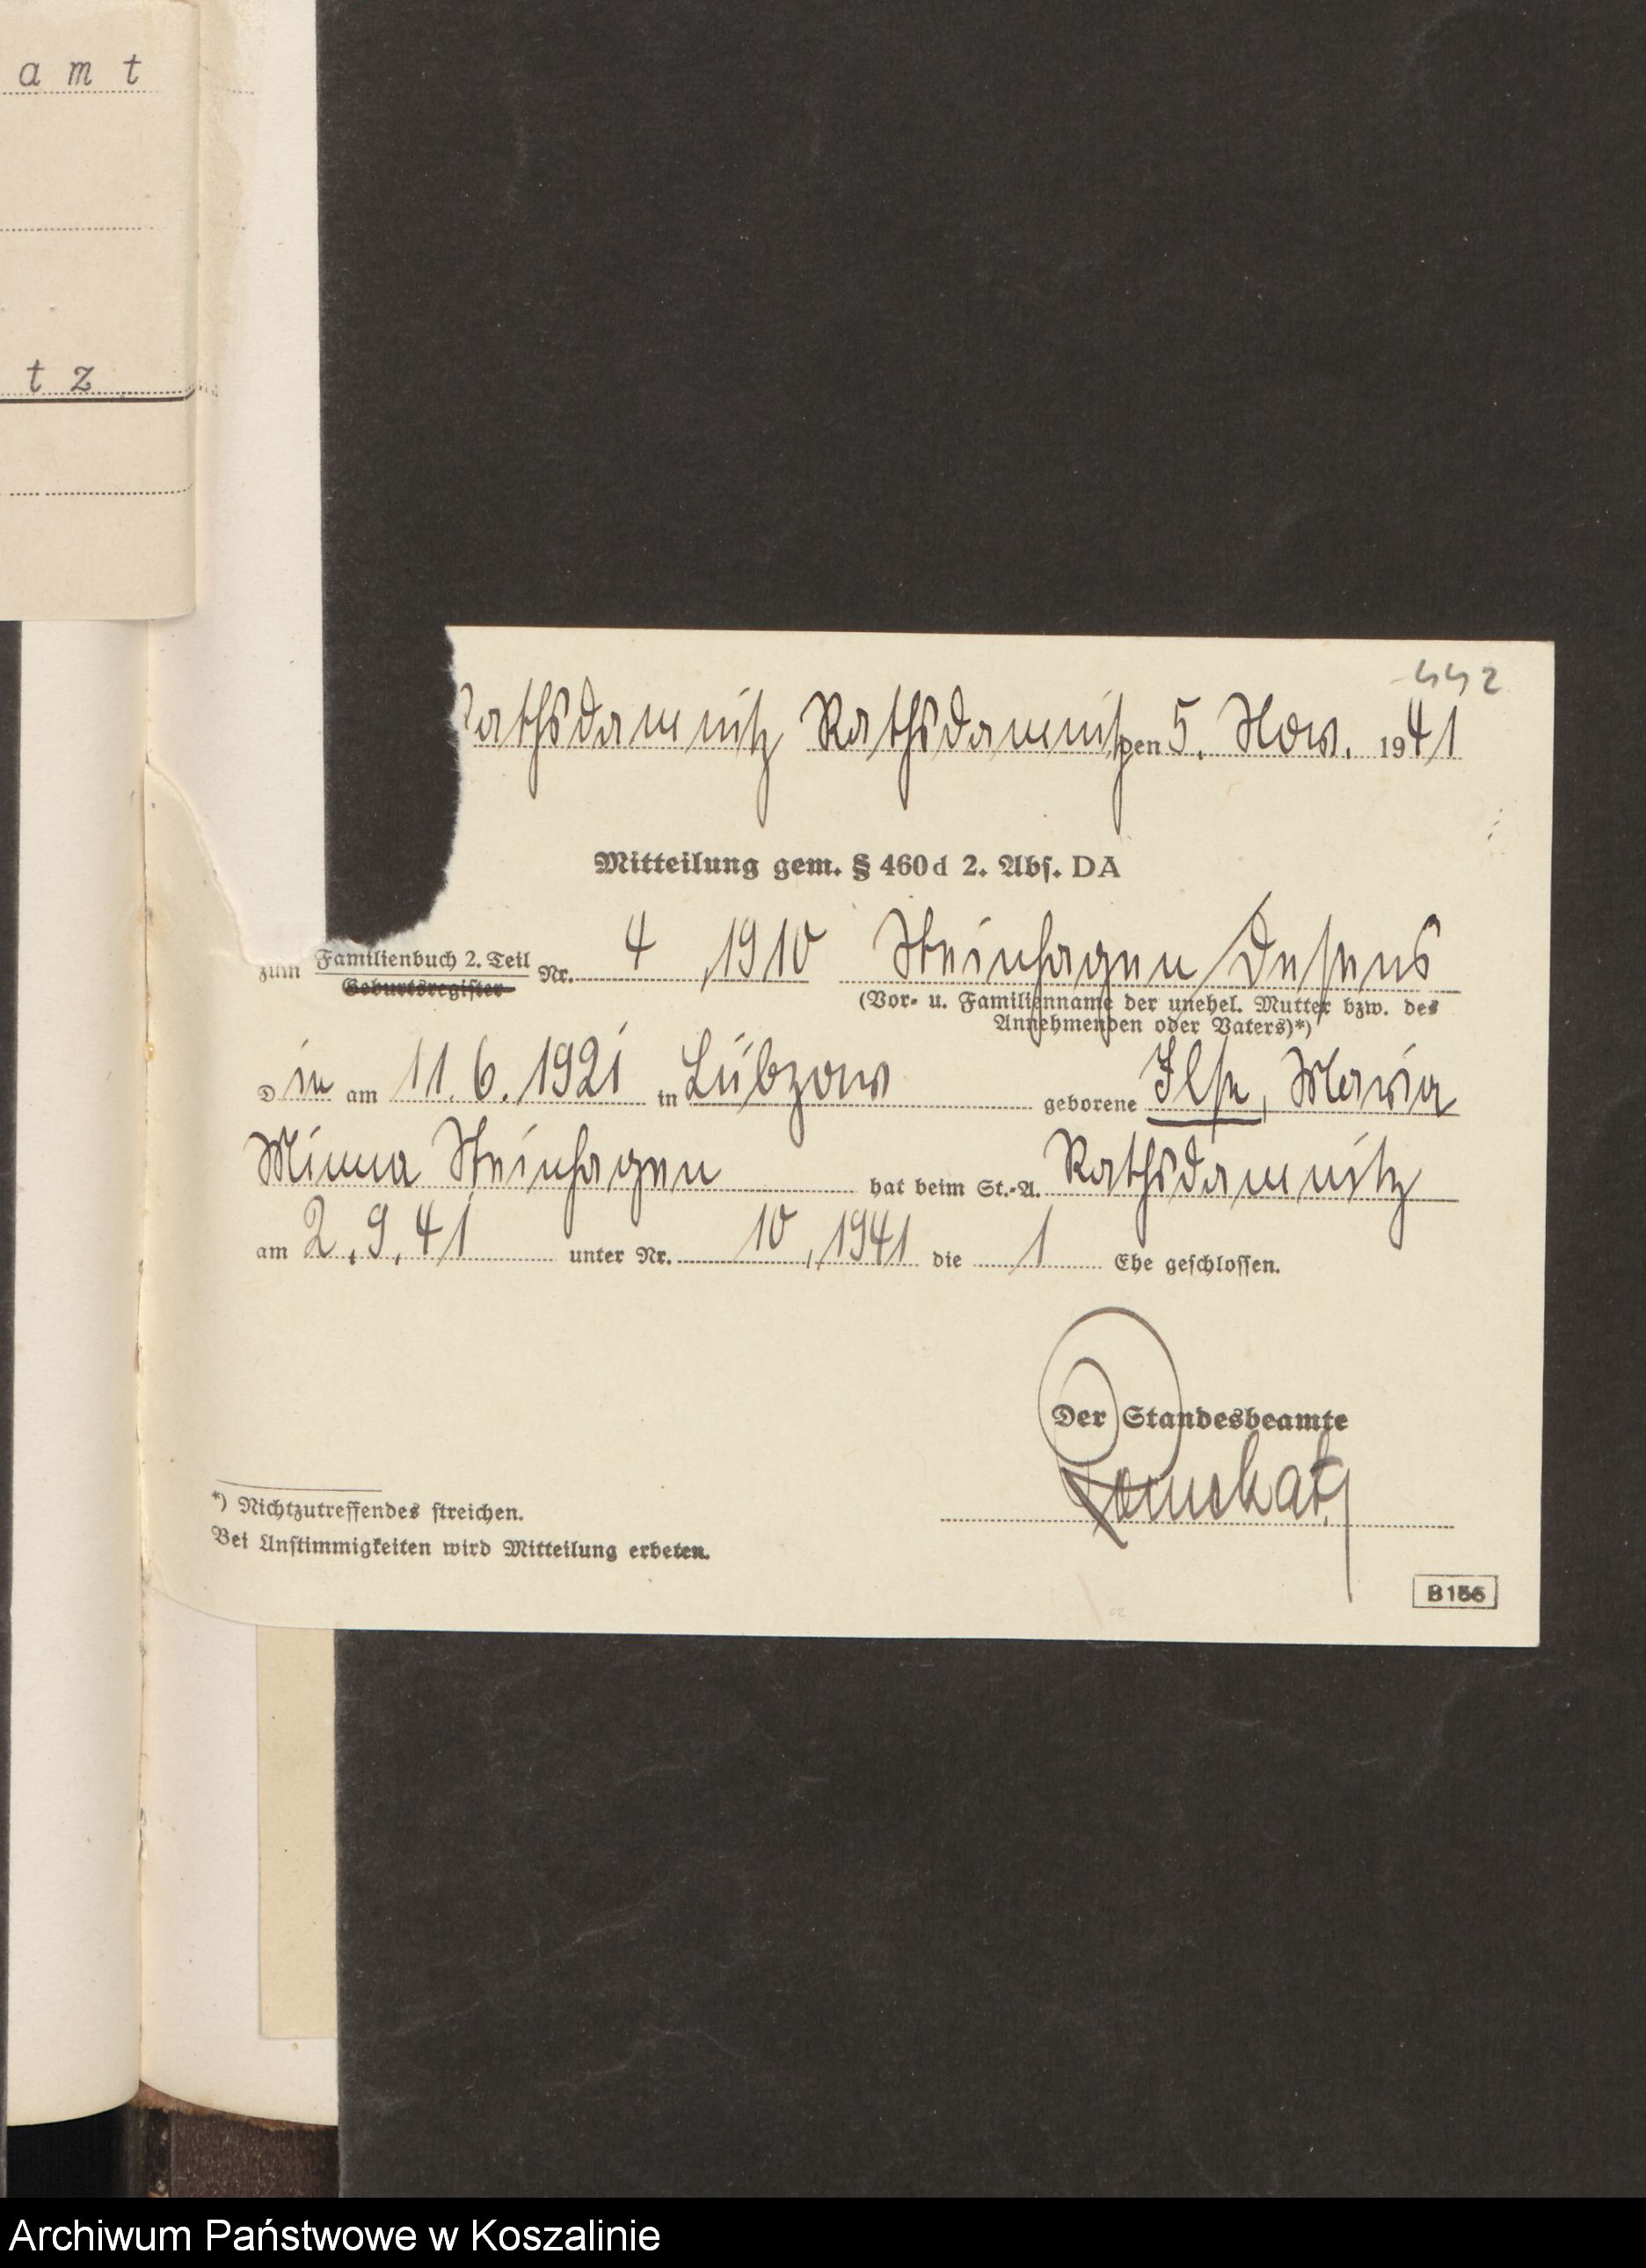 amt
tz
442
Rathsdamnitz Rathsdamnitz den 5. Nov. 1941
Mitteilung gem. § 460d 2. Abs. DA
zum Familienbuch 2. Teil Nr. 4, 1910 Steinhagen / Desens
Geburtsregister
(Vor- u. Familienname der unehel. Mutter bzw. des
Annehmenden oder Vaters)*)
Die am 11. 6. 1921 in Lübzow geborene Ilse, Maria
Minna Steinhagen hat beim St.-A. Rathsdamnitz
am 2. 9. 41 unter Nr. 10, 1941 die 1 Ehe geschlossen.
Der Standesbeamte
*) Nichtzutreffendes streichen.
Bei Unstimmigkeiten wird Mitteilung erbeten.
B 156
Archiwum Państwowe w Koszalinie